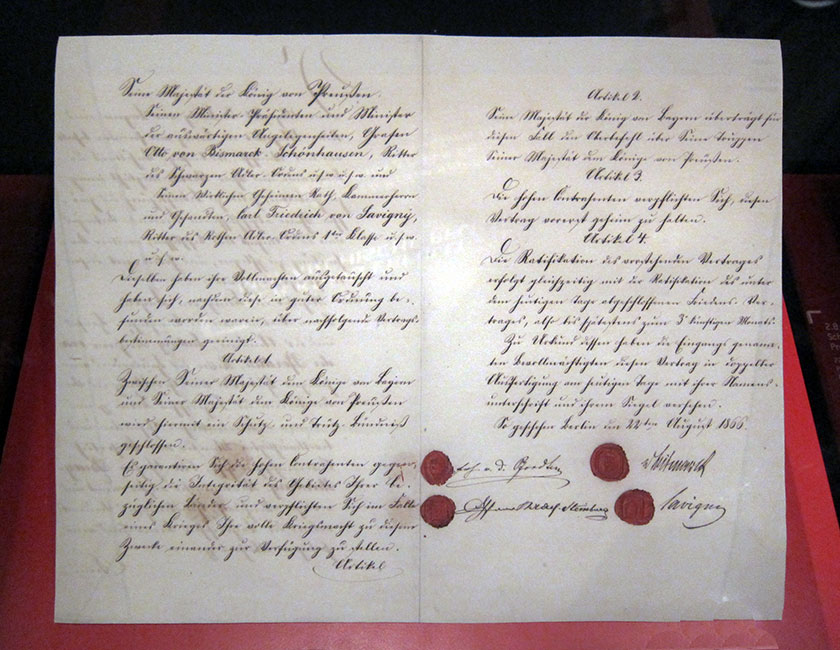 Seine Majestät der König von Preußen.
Seinen Minister-Präsidenten und Minister
der auswärtigen Angelegenheiten, Grafen
Otto von Bismarck-Schönhausen, Ritter
des Schwarzen Adler-Ordens u.s.w. u.s.w. und
Seinen Wirklichen Geheimen Rath, Kammerherrn
und Gesandten, Carl Friedrich von Savigny,
Ritter des Rothen Adler-Ordens 1ter Klasse u.s.w.
u.s.w.
Dieselben haben ihre Vollmachten ausgetauscht und
haben sich, nachdem diese in guter Ordnung be-
funden worden waren, über nachfolgende Vertrags-
bestimmungen geeinigt.
Artikel 1.
Zwischen Seiner Majestät dem Könige von Bayern
und Seiner Majestät dem Könige von Preußen
wird hiermit ein Schutz- und Trutz-Bündniß
geschlossen.
Es garantiren Sich die hohen Contrahenten gegen-
seitig die Integrität des Gebietes Ihrer be-
züglichen Länder und verpflichten Sich im Falle
eines Krieges Ihre volle Kriegsmacht zu diesem
Zwecke einander zur Verfügung zu stellen.
Artikel
Artikel 2.
Seine Majestät der König von Bayern überträgt für
diesen Fall den Oberbefehl über Seine Truppen
Seiner Majestät dem Könige von Preußen.
Artikel 3.
Die hohen Contrahenten verpflichten Sich, diesen
Vertrag vorerst geheim zu halten.
Artikel 4.
Die Ratifikation des vorstehenden Vertrages
erfolgt gleichzeitig mit der Ratifikation des unter
dem heutigen Tage abgeschlossenen Friedens-Ver-
trages, also bis spätestens zum 3t künftigen Monats.
Zu Urkund dessen haben die Eingangs genann-
ten Bevollmächtigten diesen Vertrag in doppelter
Ausfertigung am heutigen Tage mit ihrer Namens-
unterschrift und ihrem Siegel versehen.
So geschehen Berlin den 22ten August 1866.
v. d. Pfordten
v Bismarck
Savigny